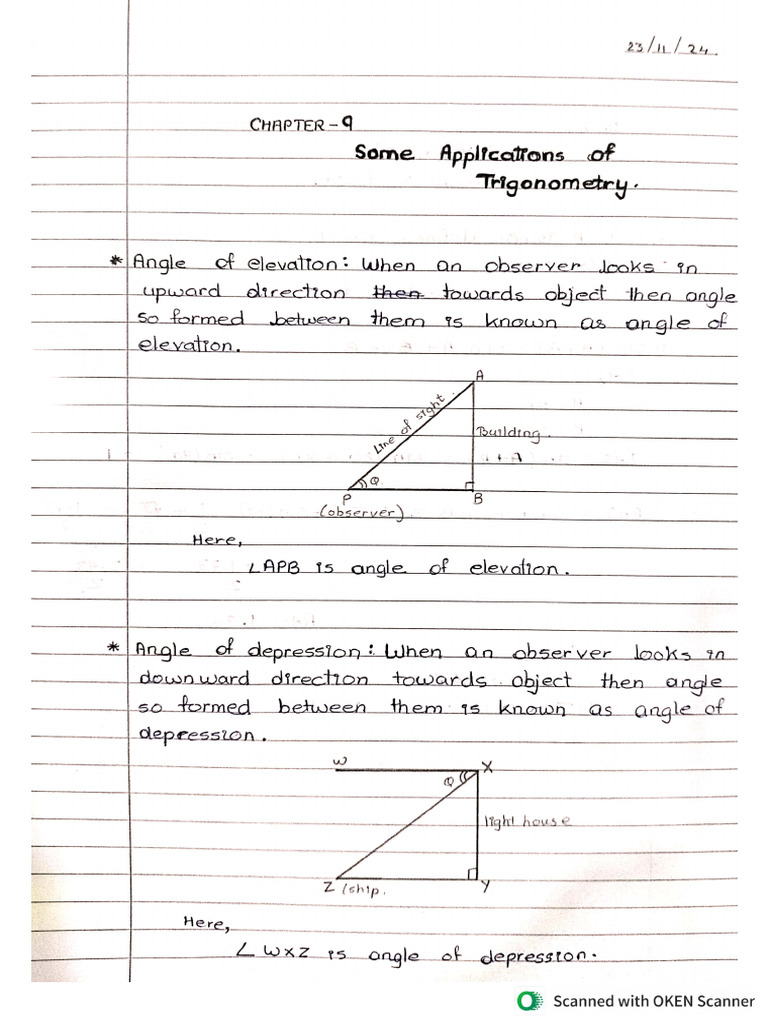 23/11/24.
CHAPTER-9
Some Applications of
Trigonometry.
* Angle of elevation: When an observer looks in
upward direction then towards object then angle
so formed between them is known as angle of
elevation.
A
Line of sight
Building.
θ
P
B
(observer)
Here,
∠APB is angle of elevation.
* Angle of depression: When an observer looks in
downward direction towards object then angle
so formed between them is known as angle of
depression.
W
X
θ
light house
Z/ship.
Y
Here,
∠WXZ is angle of depression.
Scanned with OKEN Scanner